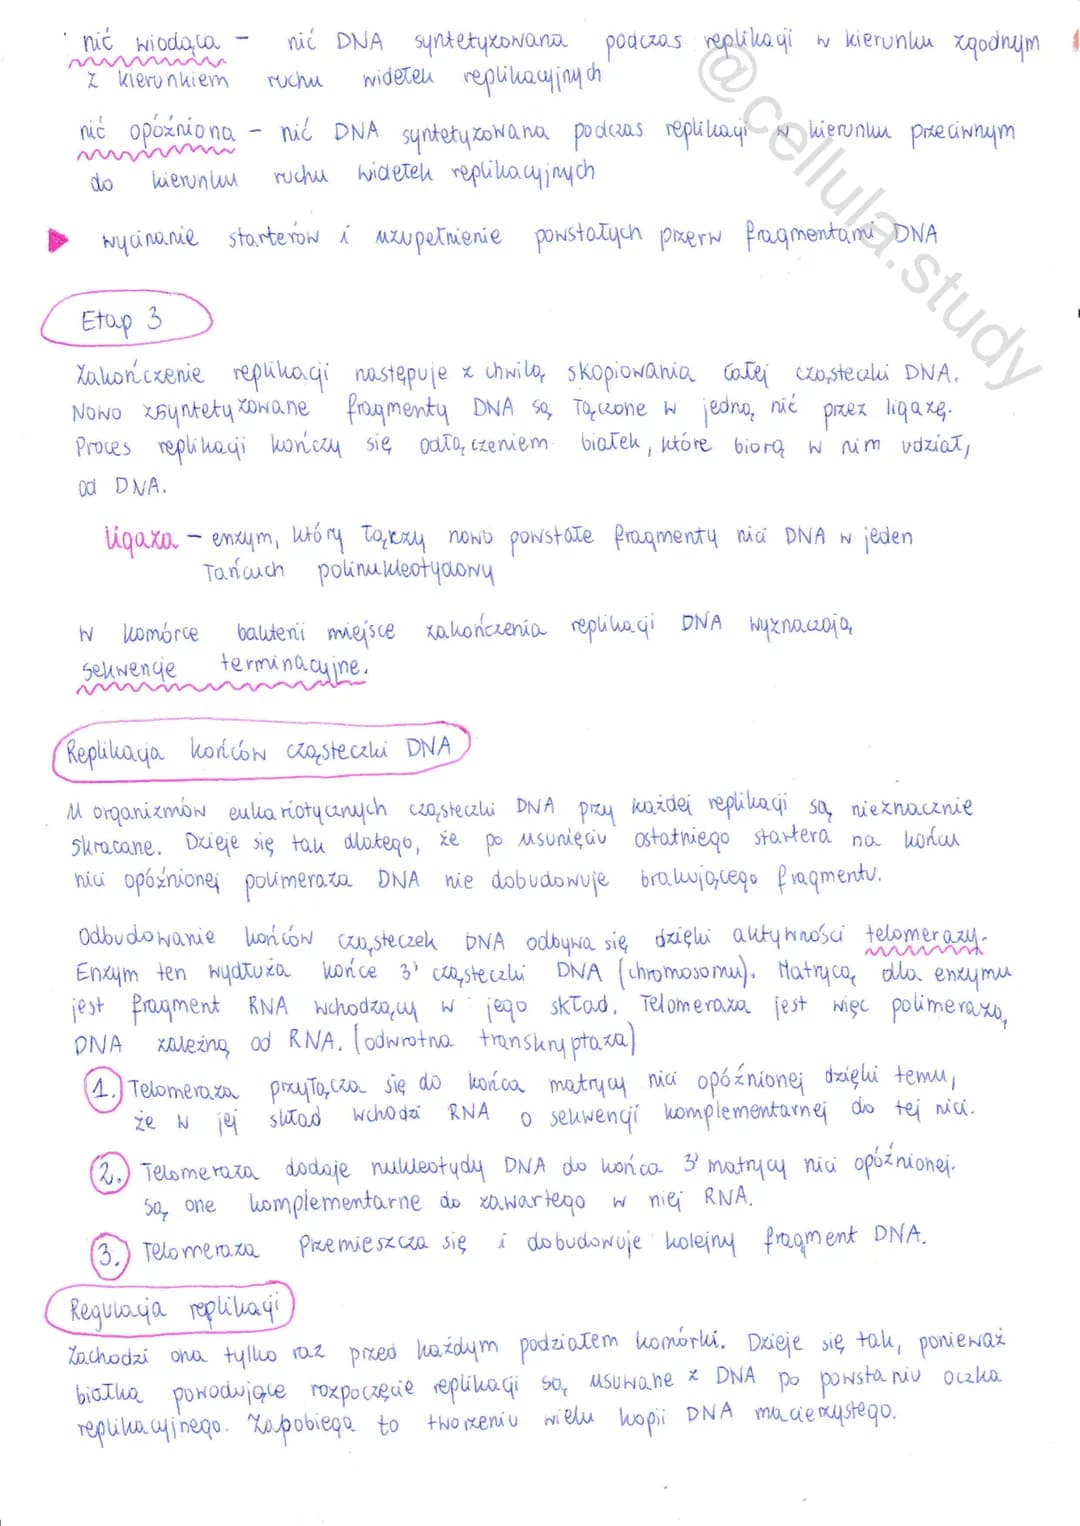 nić wiodąca – nić DNA syntetyzowana podczas replikacji w kierunku zgodnym
z kierunkiem ruchu widełek replikacyjnych
nić opóźniona – nić DNA syntetyzowana podczas replikacji w kierunku przeciwnym
do kierunku ruchu widełek replikacyjnych
wycinanie starterów i uzupełnienie powstałych przerw fragmentami DNA
@cellula.study
Etap 3
Zakończenie replikacji następuje z chwilą skopiowania całej cząsteczki DNA.
Nowo zsyntetyzowane fragmenty DNA są łączone w jedną nić przez ligazę.
Proces replikacji kończy się odłączeniem białek, które biorą w nim udział,
od DNA.
Ligaza – enzym, który łączy nowo powstałe fragmenty nici DNA w jeden
łańcuch polinukleotydowy
W komórce bakterii miejsce zakończenia replikacji DNA wyznaczają
sekwencje terminacyjne.
Replikacja końców cząsteczki DNA
U organizmów eukariotycznych cząsteczki DNA przy każdej replikacji są nieznacznie
skracane. Dzieje się tak dlatego, że po usunięciu ostatniego startera na końcu
nici opóźnionej polimeraza DNA nie dobudowuje brakującego fragmentu.
Odbudowanie końców cząsteczek DNA odbywa się dzięki aktywności telomerazy.
Enzym ten wydłuża końce 3' cząsteczki DNA (chromosomu). Matrycą dla enzymu
jest fragment RNA wchodzący w jego skład. Telomeraza jest więc polimerazą
DNA zależną od RNA. (odwrotna transkryptaza)
1. Telomeraza przyłącza się do końca matrycy nici opóźnionej dzięki temu,
że w jej skład wchodzi RNA o sekwencji komplementarnej do tej nici.
2. Telomeraza dodaje nukleotydy DNA do końca 3' matrycy nici opóźnionej.
Są one komplementarne do zawartego w niej RNA.
3. Telomeraza Przemieszcza się i dobudowuje kolejny fragment DNA.
Regulacja replikacji
Zachodzi ona tylko raz przed każdym podziałem komórki. Dzieje się tak, ponieważ
białka powodujące rozpoczęcie replikacji są usuwane z DNA po powstaniu oczka
replikacyjnego. Zapobiega to tworzeniu wielu kopii DNA macierzystego.